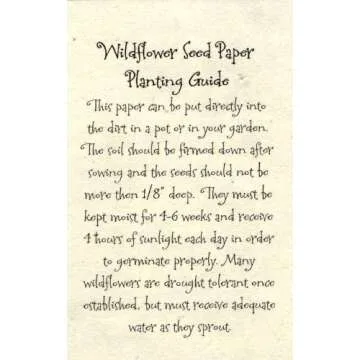 Wildflower Seed Paper
Planting Guide
This paper can be put directly into
the dirt in a pot or in your garden.
The soil should be firmed down after
sowing and the seeds should not be
more then 1/8" deep. They must be
kept moist for 4-6 weeks and receive
4 hours of sunlight each day in order
to germinate properly. Many
wildflowers are drought tolerant once
established, but must receive adequate
water as they sprout.